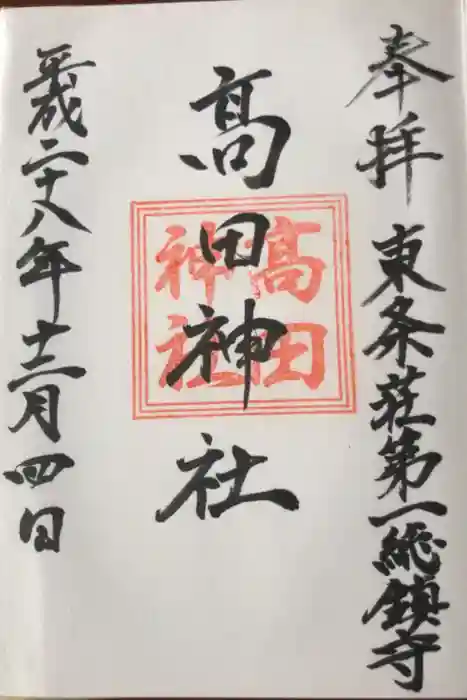 奉拝 東条荘第一総鎮守
高田神社
高田
神社
平成二十八年十二月四日